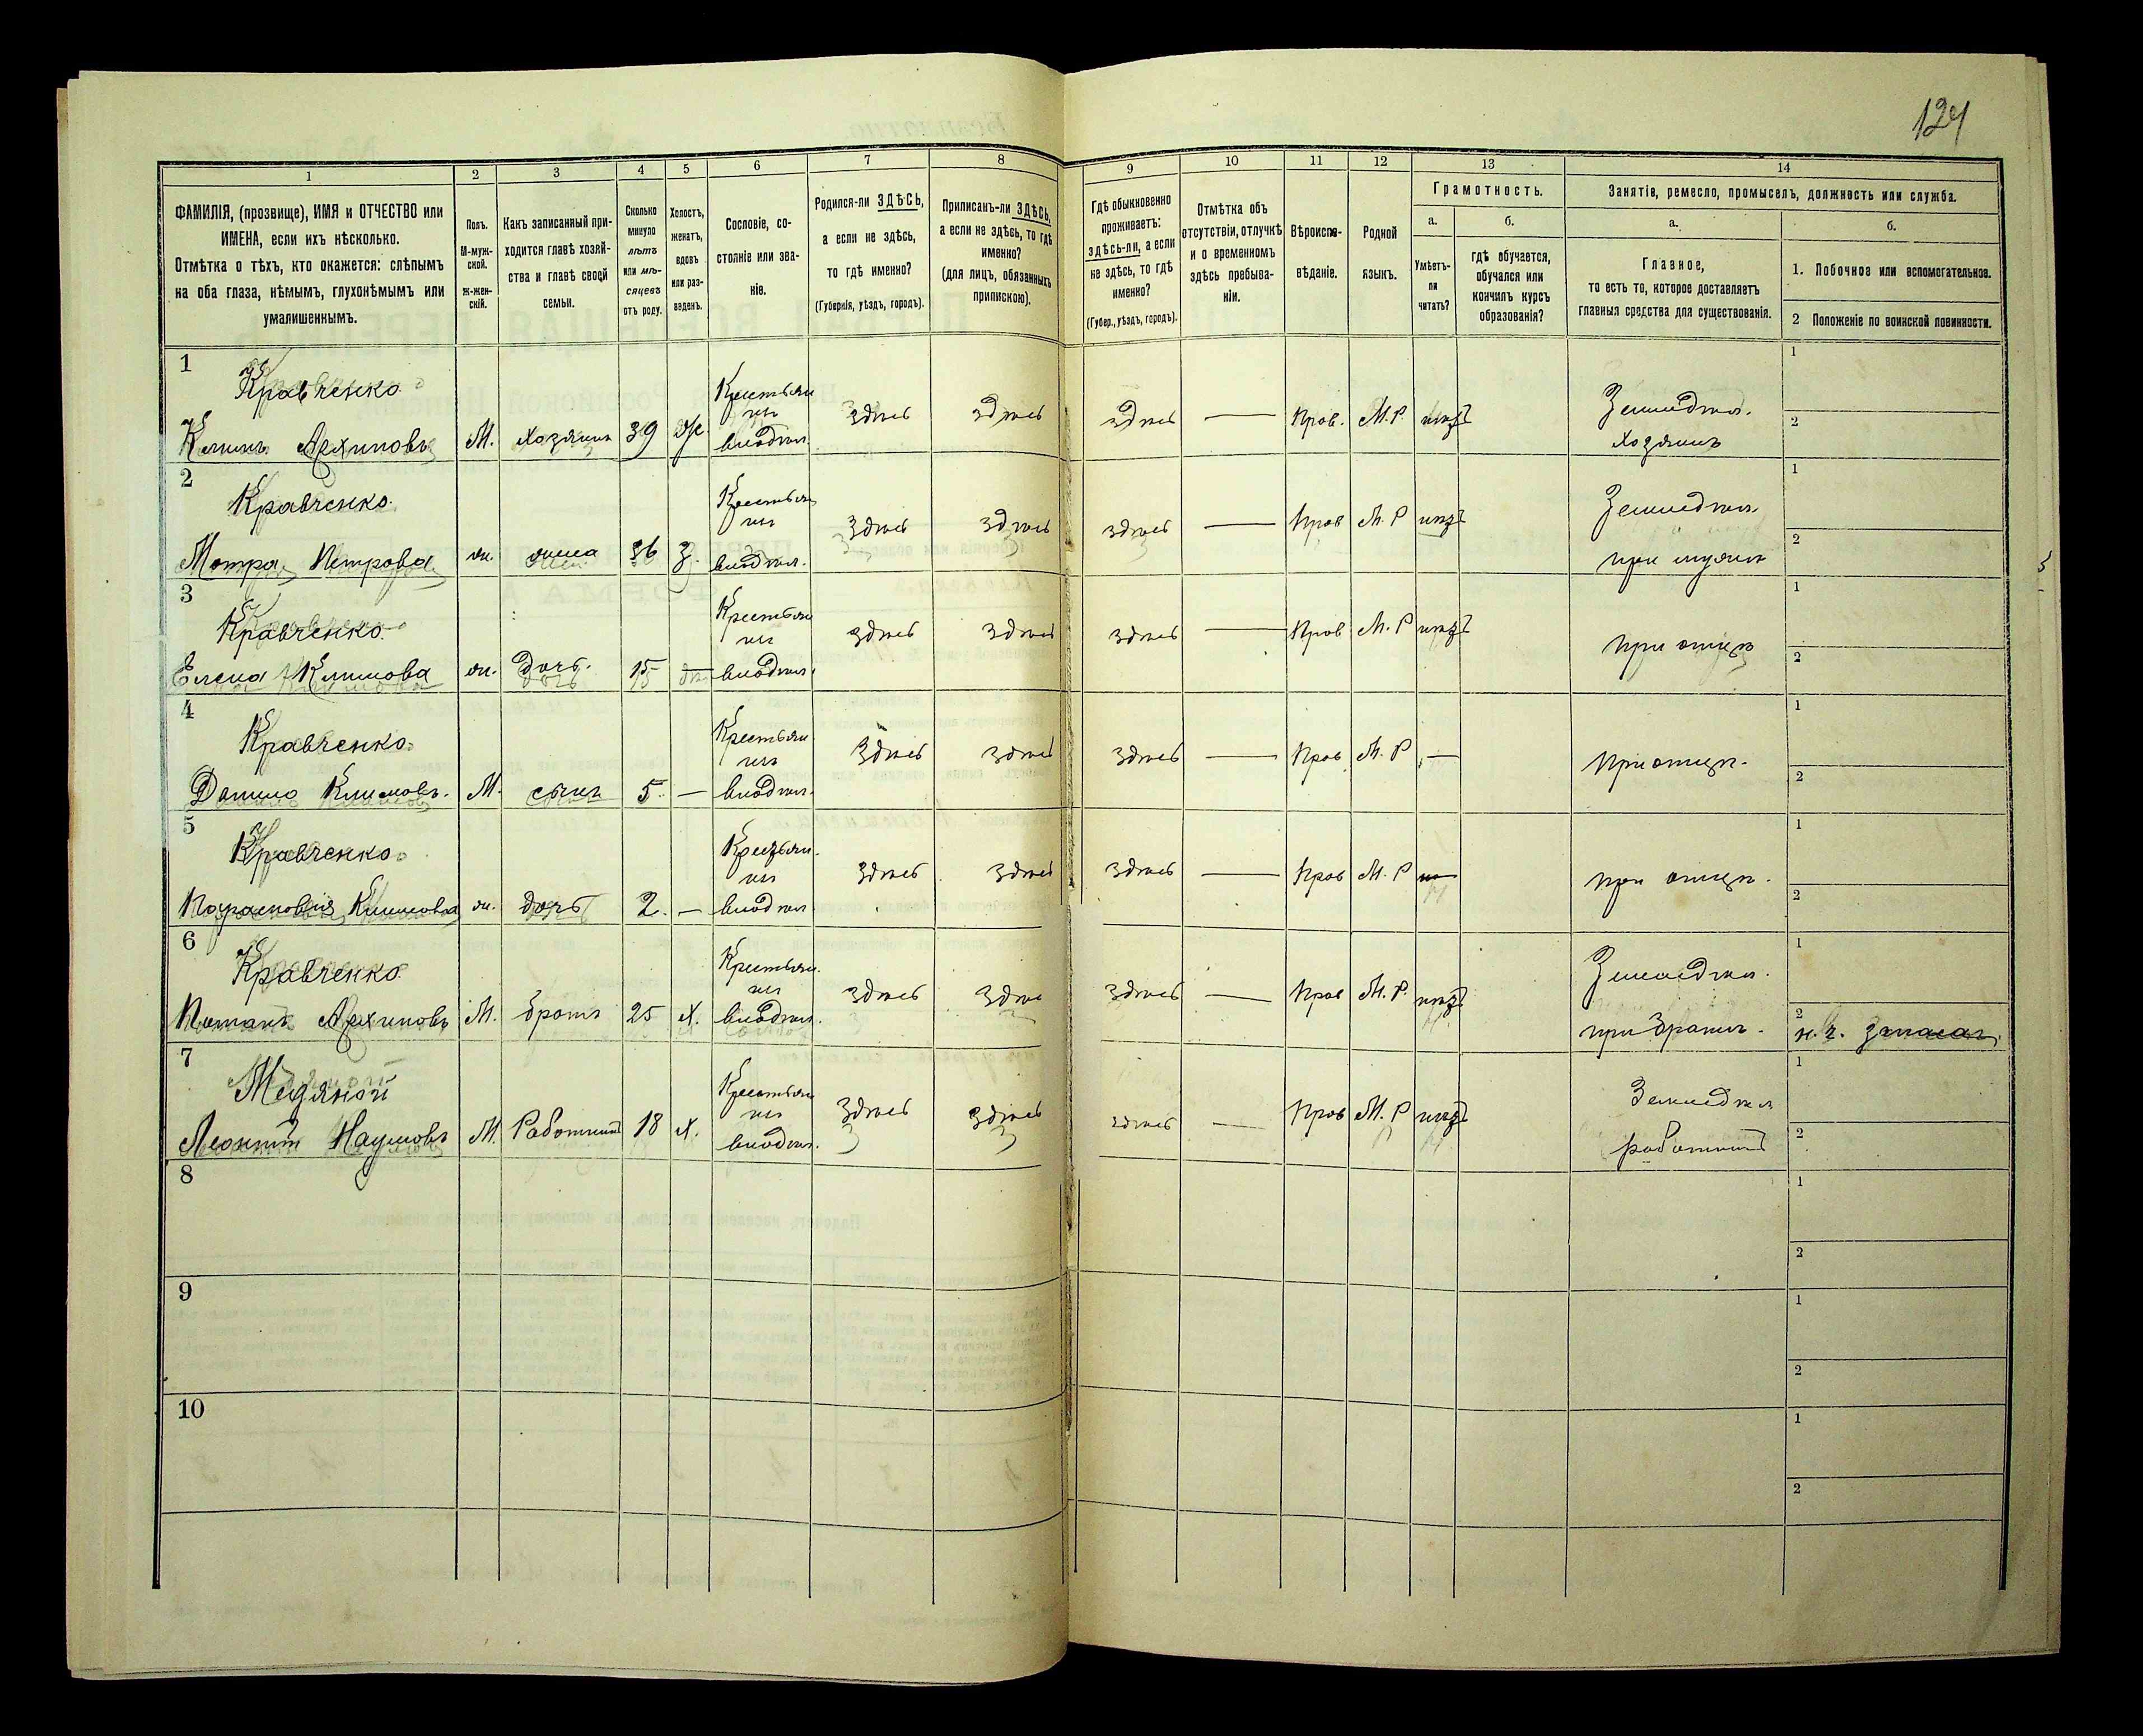 124
1
2
3
4
5
6
7
8
9
10
11
12
13
14
ФАМИЛІЯ, (прозвище), ИМЯ и ОТЧЕСТВО или
ИМЕНА, если ихъ нѣсколько.
Отмѣтка о тѣхъ, кто окажется: слѣпымъ
на оба глаза, нѣмымъ, глухонѣмымъ или
умалишеннымъ.
Полъ.
М-муж-
ской.
ж-жен-
скій.
Какъ записанный при-
ходится главѣ хозяй-
ства и главѣ своей
семьи.
Сколько
минуло
лѣтъ
или мѣ-
сяцевъ
отъ роду.
Холостъ,
женатъ,
вдовъ
или раз-
веденъ.
Сословіе, со-
стояніе или зва-
ніе.
Родился-ли ЗДѢСЬ,
а если не здѣсь,
то гдѣ именно?
(Губернія, уѣздъ, городъ).
Приписанъ-ли ЗДѢСЬ,
а если не здѣсь, то гдѣ
именно?
(для лицъ, обязанныхъ
припискою).
Гдѣ обыкновенно
проживаетъ:
здѣсь-ли, а если
не здѣсь, то гдѣ
именно?
(Губер., уѣздъ, городъ).
Отмѣтка объ
отсутствіи, отлучкѣ
и о временномъ
здѣсь пребыва-
ніи.
Вѣроиспо-
вѣданіе.
Родной
языкъ.
Грамотность.
а.
б.
Умѣетъ-
ли
читать?
гдѣ обучается,
обучался или
кончилъ курсъ
образованія?
Занятіе, ремесло, промыселъ, должность или служба.
а.
б.
Главное,
то есть то, которое доставляетъ
главныя средства для существованія.
1. Побочное или вспомогательное.
2 Положеніе по воинской повинности.
1
Кравченко
Климъ Архиповъ М. хозяинъ 39 Крестьян
здѣсь здѣсь здѣсь — Прав. М. Р. нѣтъ
Земледѣл.
хозяинъ
1
2
2
Кравченко
Мотра Петрова ж. жена 36 З. Крестьян
здѣсь здѣсь здѣсь — Прав М. Р нѣтъ
Земледѣл.
при мужѣ
1
2
3
Кравченко
Елена Климова ж. Дочь. 15 — Крестьян
здѣсь здѣсь здѣсь — Прав М. Р нѣтъ
при отцѣ
1
2
4
Кравченко
Данило Климовъ. М. сынъ 5. — Крестьян
здѣсь здѣсь здѣсь — Прав М. Р —
при отцѣ.
1
2
5
Кравченко
Парасковія Климова ж. дочь 2. — Крестьян.
здѣсь здѣсь здѣсь — Прав М. Р
при отцѣ.
1
2
6
Кравченко
Потапъ Архиповъ М. братъ 25 х. Крестьян.
здѣсь здѣсь здѣсь — Прав М. Р. нѣтъ
Земледѣл.
при братѣ.
1
2
7
Медяной
Леонтій Наумовъ М. Работникъ 18 х. Крестьян
здѣсь здѣсь здѣсь — Прав М. Р нѣтъ
Земледѣл
работникъ
1
2
8
1
2
9
1
2
10
1
2